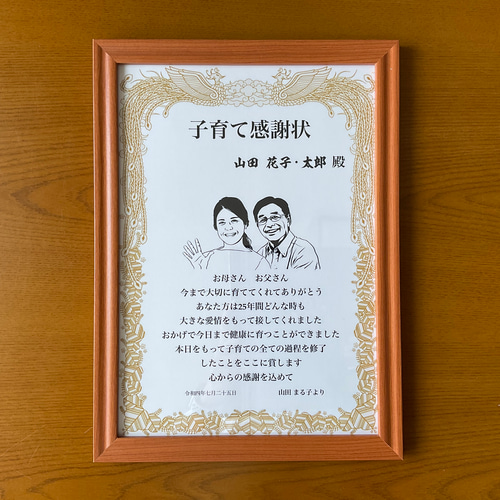 子育て感謝状
山田 花子・太郎 殿
お母さん お父さん
今まで大切に育ててくれてありがとう
あなた方は25年間どんな時も
大きな愛情をもって接してくれました
おかげで今日まで健康に育つことができました
本日をもって子育ての全ての過程を修了
したことをここに賞します
心からの感謝を込めて
令和四年七月二十五日 山田 まる子より